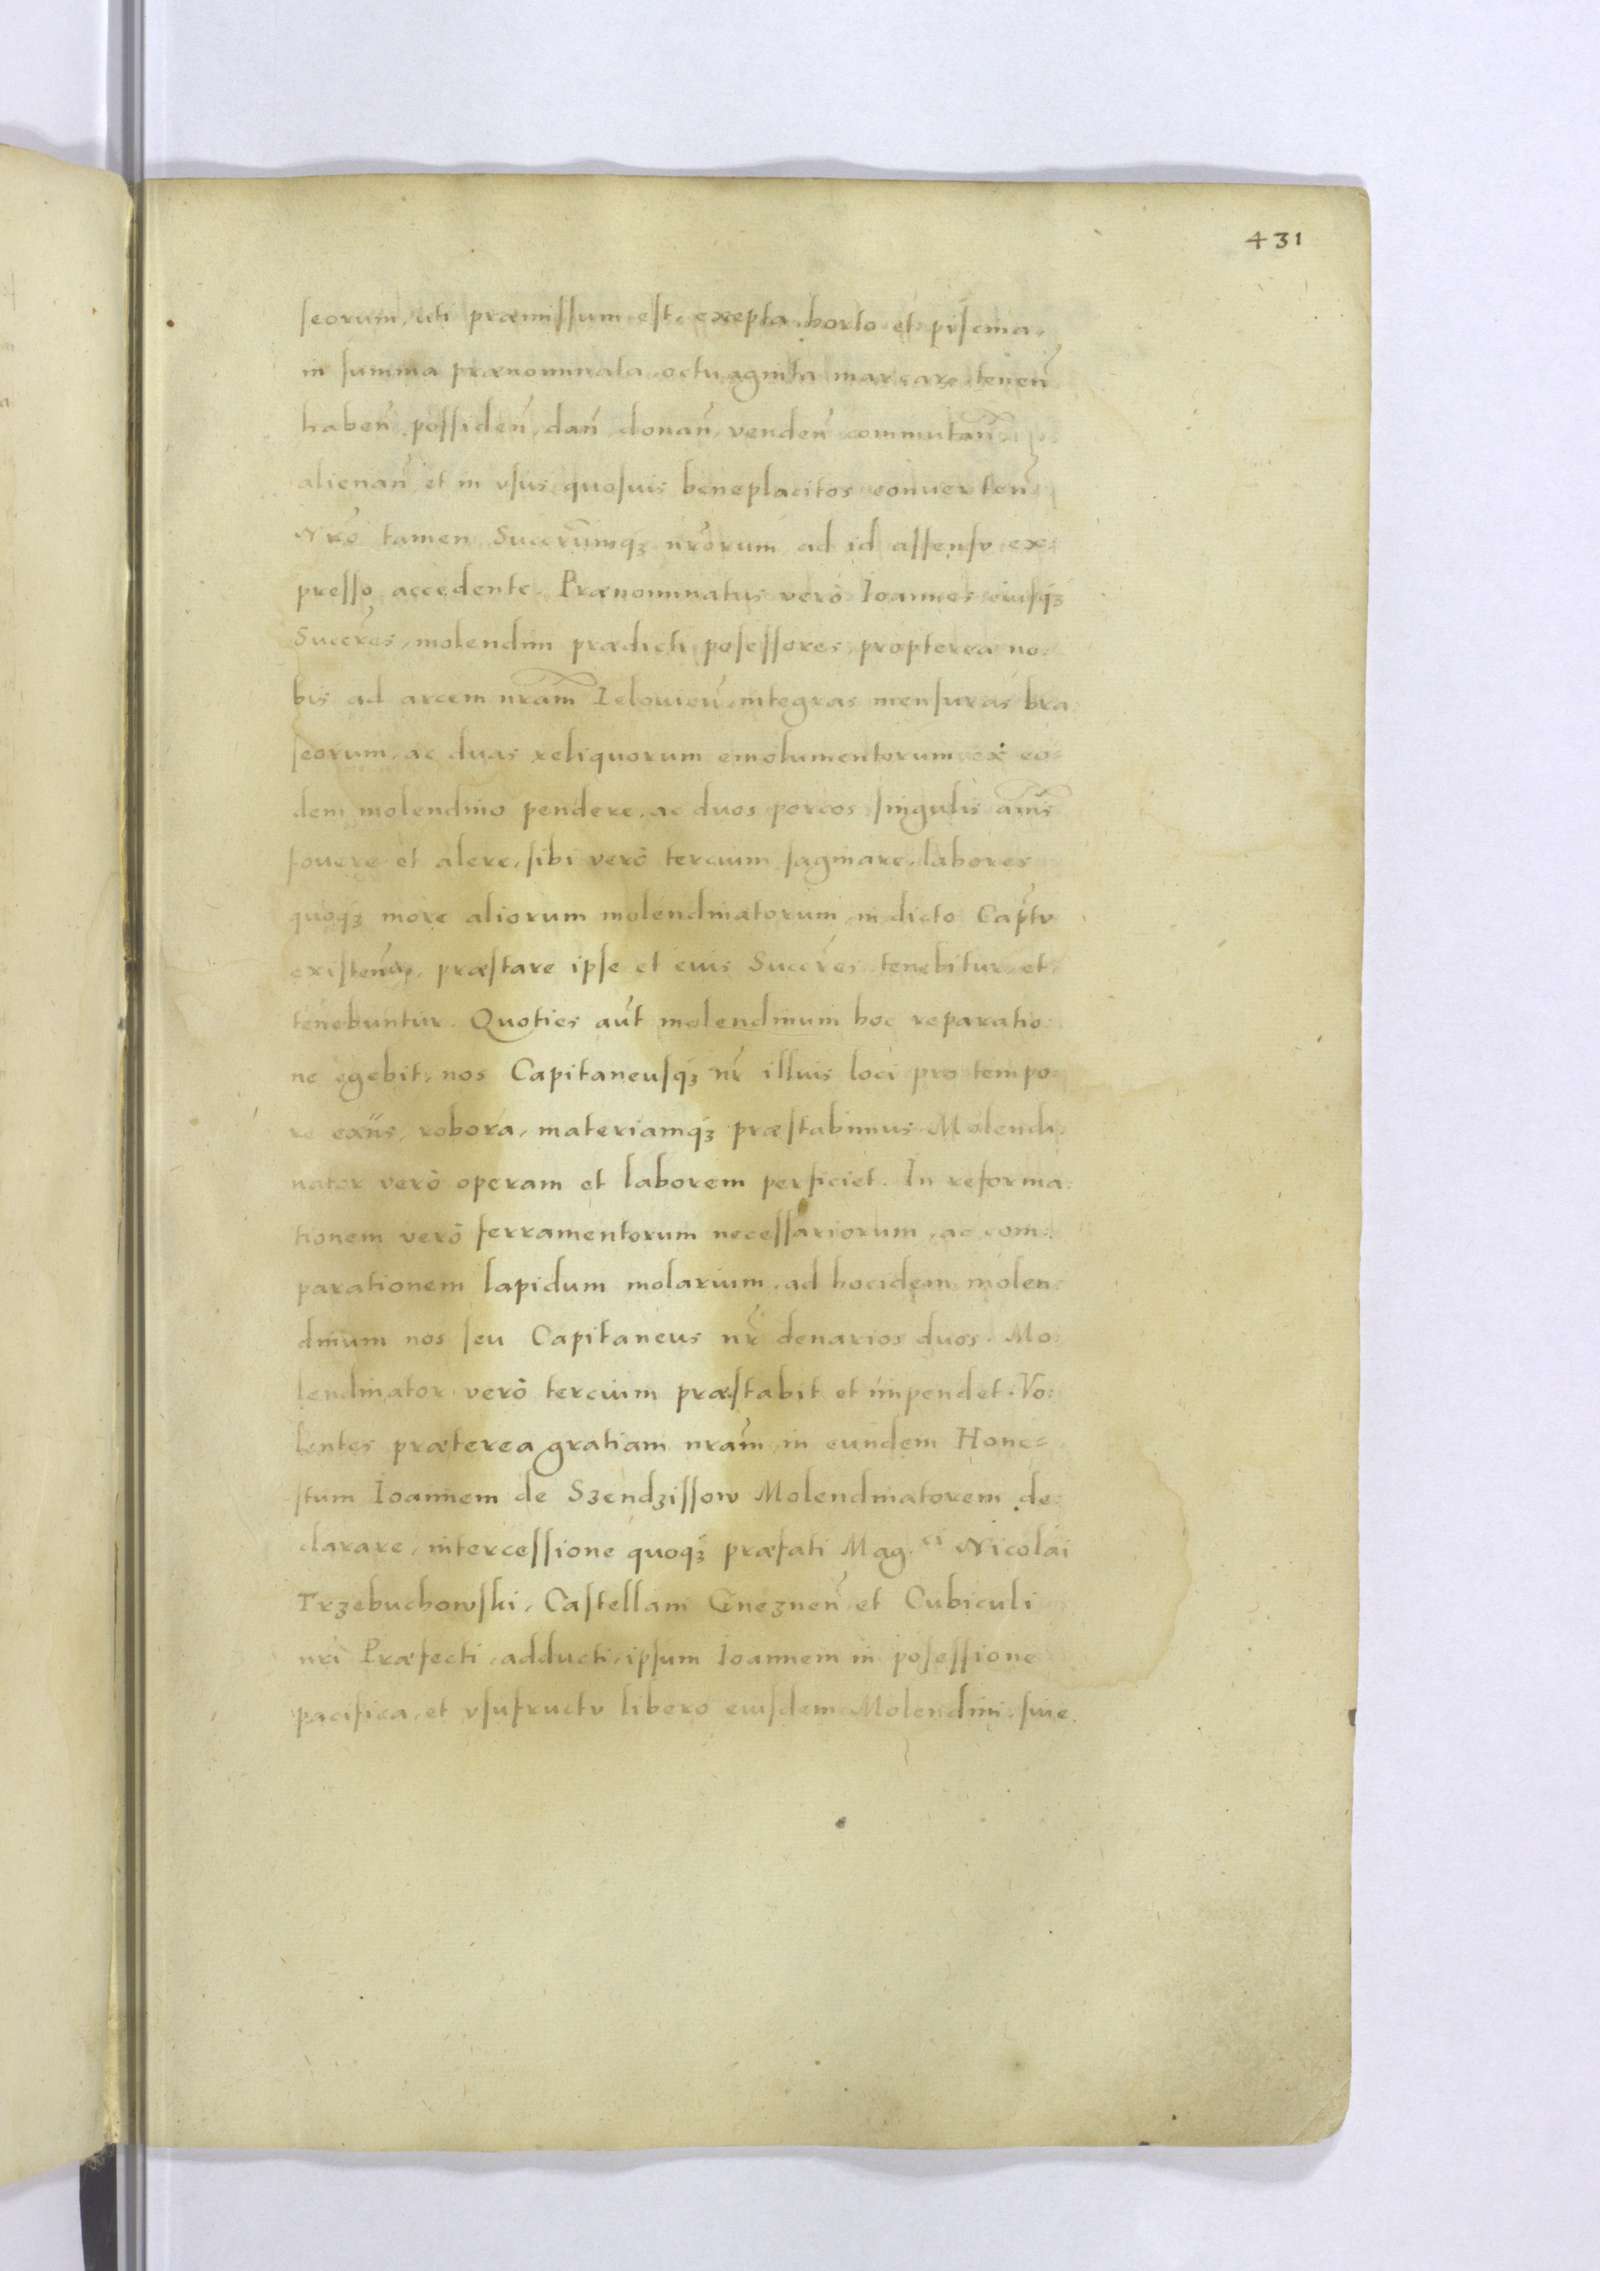 431
seorum, uti præmissum est, excepta horto et piscina,
in summa prænominata octuaginta marcar tenen̄
haben̄ possiden̄, dan̄ donan̄, venden̄ commutan̄
alienan̄ et in vsus quosuis beneplacitos conuerten̄
Nr̄o tamen Succr̄umqꝫ nr̄orum ad id assensv ex:
presso accedente. Prænominatus verò Ioannes eiusqꝫ
Succr̄es, molendini prædicti posessores, propterea no:
bis ad arcem nram̄ Ielouien̄, integras mensuras bra
seorum, ac duas reliquorum emolumentorum ex eo:
dem molendino pendere, ac duos porcos singulis annis
fouere et alere, sibi verò tercium saginare, labores
quoqꝫ more aliorum molendinatorum in dicto Cap̄tv
præstare ipse et eius Succr̄es tenebitur et
tenebuntur. Quoties aut̄ molendinum hoc reparatio:
ne egebit, nos Capitaneusqꝫ nr̄ illius loci pro tempo:
re exn̄s, robora, materiamqꝫ præstabimus Molendi:
nator verò operam et laborem perficiet. In reforma:
tionem verò ferramentorum necessariorum, ac com:
parationem lapidum molarium, ad hocidem molen:
dinum nos seu Capitaneus nr̄ denarios duos. Mo:
lendinator verò tercium præstabit et impendet. Vo:
lentes præterea gratiam nram̄ in eundem Hone=
stum Ioannem de Szendzissow Molendinatorem de:
clarare, intercessione quoqꝫ præfati Mag.ci Nicolai
Trzebuchowski, Castellani Gneznen̄ et Cubiculi
nri Præfecti, adducti, ipsum Ioannem in posessione
pacifica, et vsufructv libero eiusdem Molendini, siue